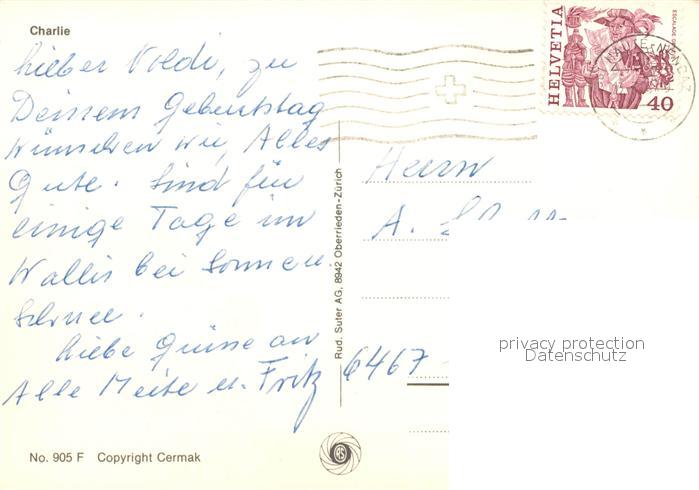 Charlie
lieber Noldi, zu
Deinem Geburtstag
wünschen wir Alles
Gute. Sind für
einige Tage im
Wallis bei Sonne u.
Schnee.
liebe Grüsse an
Alle Meite u. Fritz
No. 905 F Copyright Cermak
Rud. Suter AG, 8942 Oberrieden-Zürich
HELVETIA
40
Herrn
A.
6467
privacy protection
Datenschutz